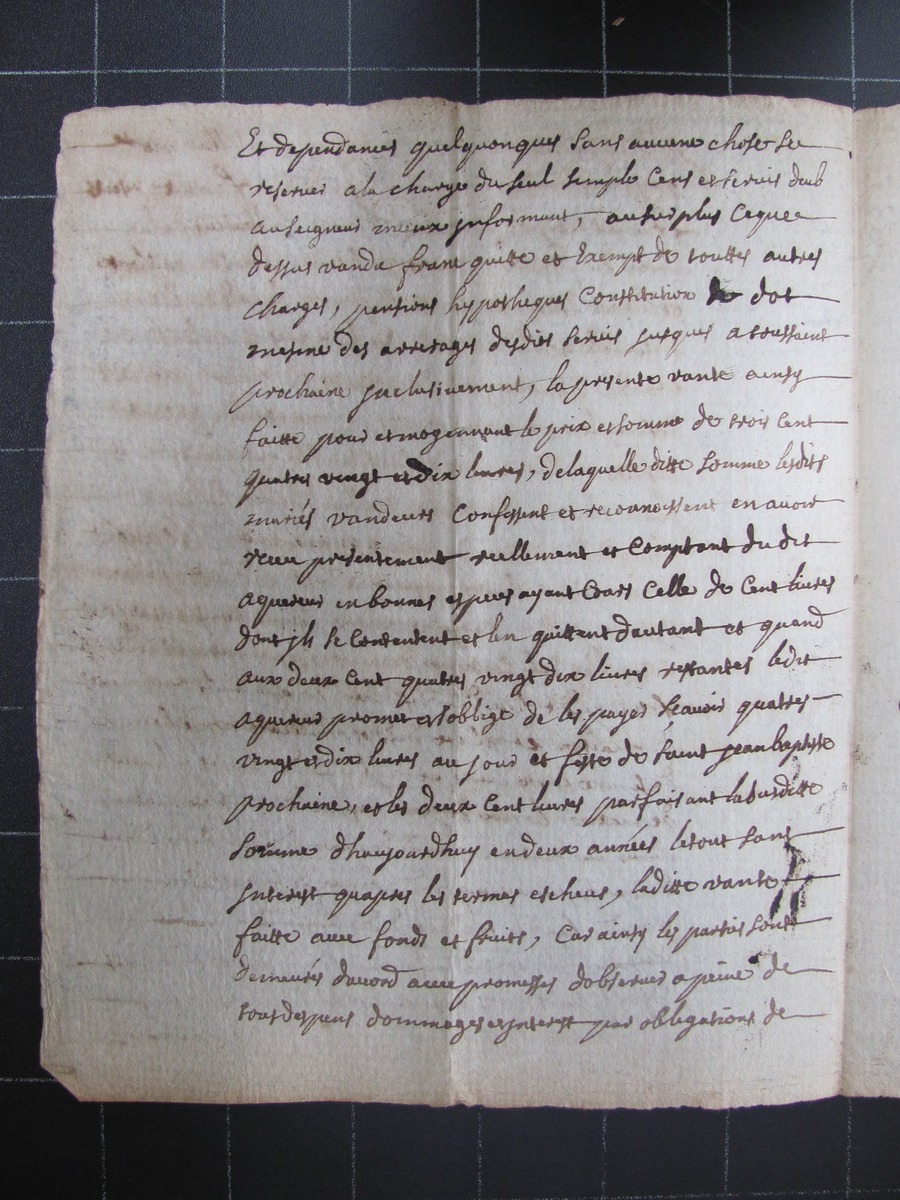 Et dependances quelquonques sans aucune chose se
reserver a la charge du seul simple Cens et servis deub
au seigneur mieux jnformant, au surplus ce que
dessus vandu franc quitte et Exempt de touttes autres
charges, pentions hypotheques Constitution de dot
mesme des arrerages desdits servis jusques a toussaint
prochaine jnclusivement, la presente vante ainsy
faitte pour et moyennant le prix et somme de trois cent
quatres vingt et dix livres, de laquelle ditte somme lesdits
mariés vandeurs Confessent et reconnoissent en avoir
receu presentement reellement et Comptant du dit
aquereur en bonnes especes ayant Cours Celle de Cent livres
dont jls se Contentent et len quittent dautant et quand
aux deux Cent quatres vingt dix livres restantes le dit
aquereur promet et soblige de les payer sçavoir quatres
vingt et dix livres au jour et feste de saint jean baptiste
prochaine, et les deux Cent livres parfaisant la susditte
somme dhaujourdhuy en deux années le tout sans
jnterest quapres les termes escheus, laditte vante
faitte avec fonds et fruits, Car ainsy les parties sont
demeurés dacord avec promesses dobserver a peine de
tous despens dommages et jnterest par obligations de